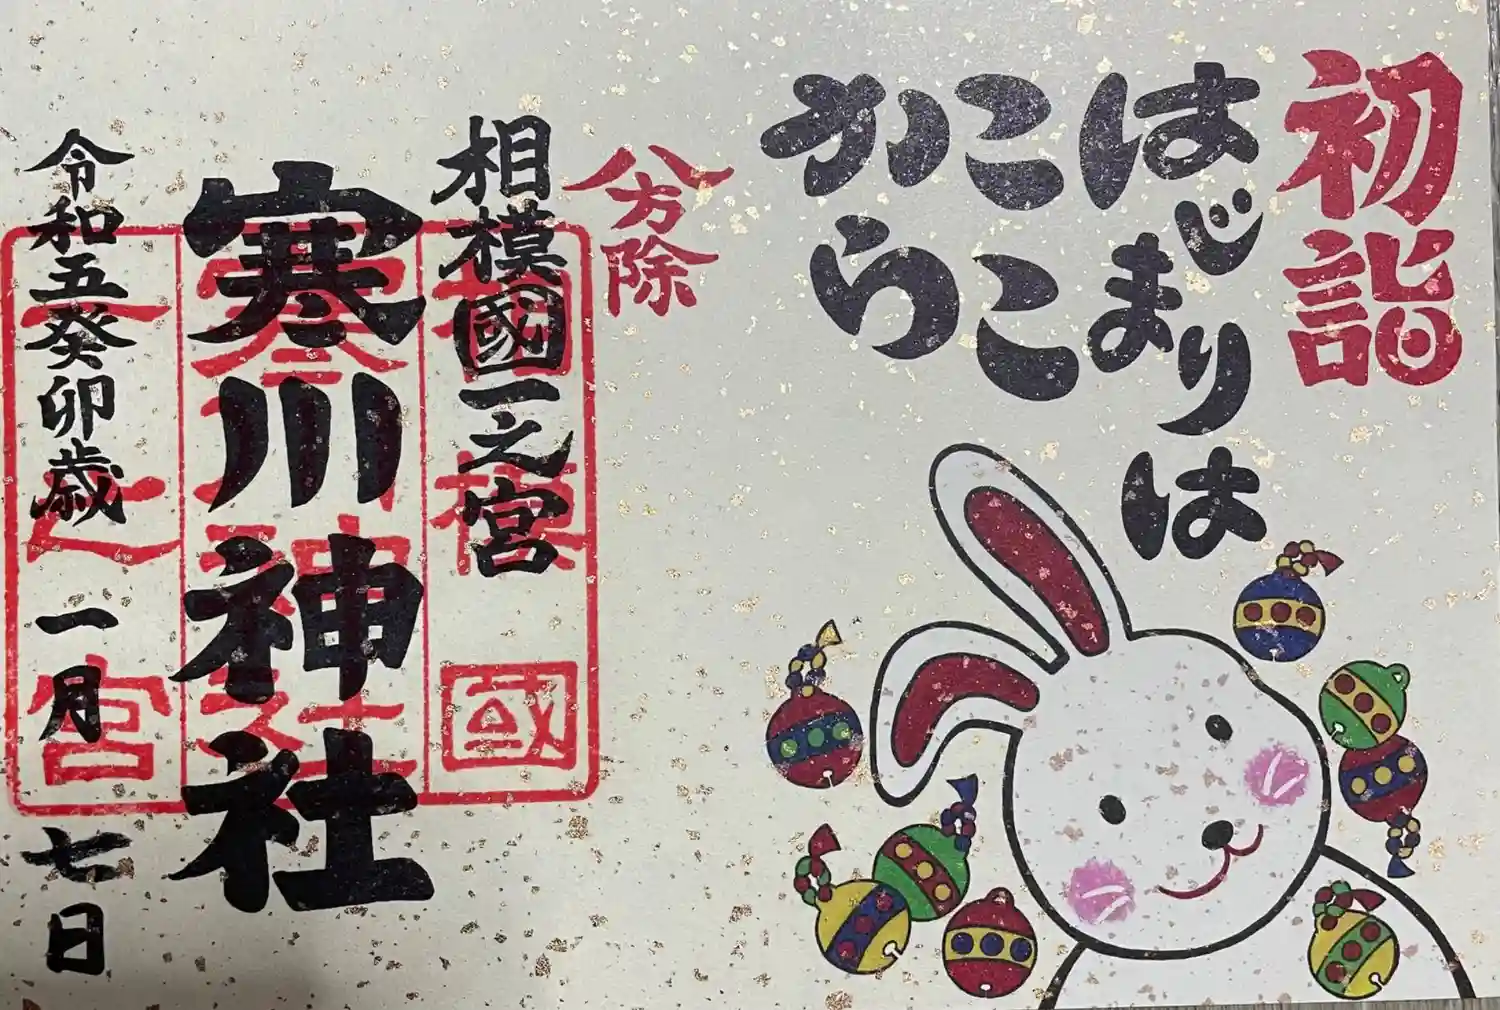 初詣
はじまりは
ここ
から
八方除
相模國一之宮
寒川神社
令和五癸卯歳 一月七日
相模國
寒川神社
一之宮